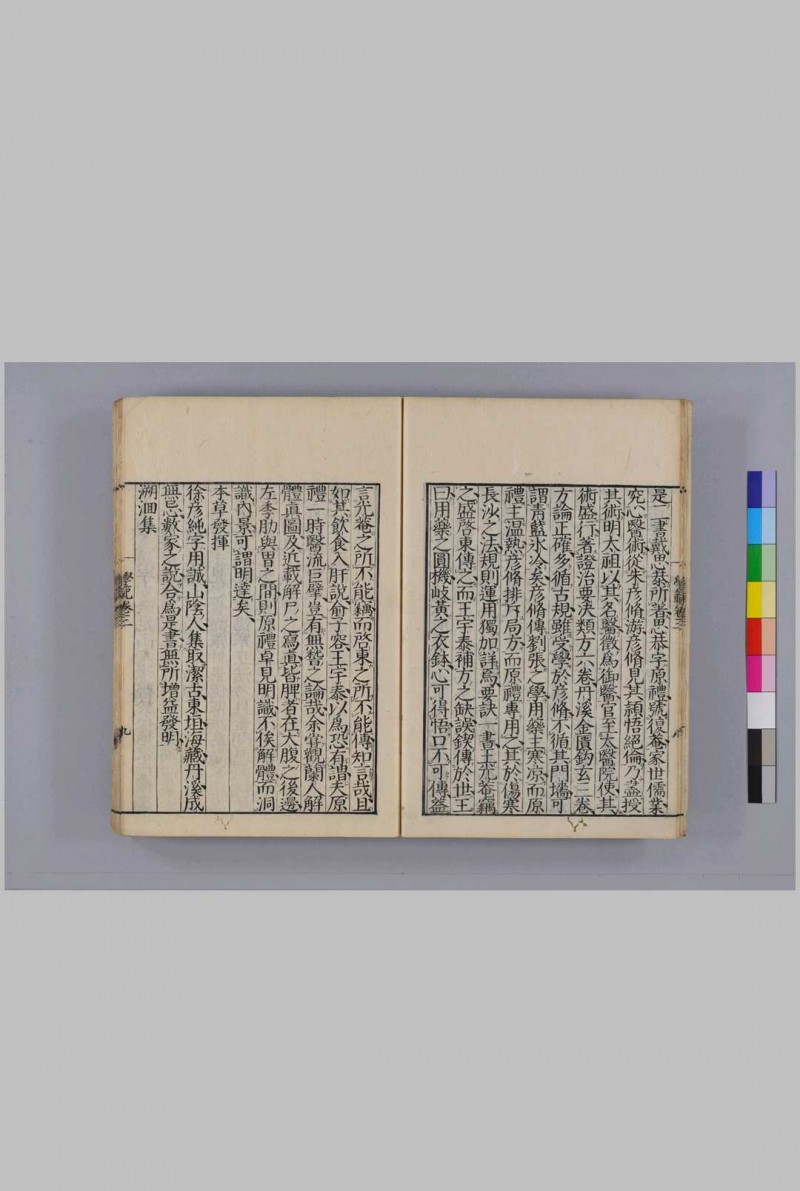 是二書戴思恭所著思恭字原禮號復菴家世儒業
究心醫術從朱彥脩游彥脩見其頴悟絕倫乃盡授
其術明太祖以其名醫徵爲御醫官至太醫院使其
術盛行著證治要決類方六卷丹溪金匱鈎玄三卷
方論正確多循古規雖受學於彥脩不循其門墻可
謂青藍氷冷矣彥脩傳劉張之學用藥主寒凉而原
禮主溫熱彥脩排斥局方而原禮專用之其於傷寒
長沙之法規則運用獨加詳爲要訣一書王光菴竊
之盛啓東傳之而王宇泰補方之缺誤鍥傳於世王
曰用藥之圓機岐黃之衣鉢心可得悟口不可傳葢
言光菴之所不能竊而啓東之所不能傳知言哉且
如其飲食入肝說愈子容王宇泰以爲恐有謂夫原
禮一時醫流巨擘豈有無稽之論哉余嘗觀蘭人解
體眞圖及近載解尸之爲眞皆脾者在大腹之後邊
左季肋與胃之間則原禮卓見明識不俟解體而洞
識內景可謂明達矣
本草發揮
徐彥純字用誠山陰人集取潔古東垣海藏丹溪成
無己數家之說合爲是書無所增益發明
溯洄集
學範卷三
九